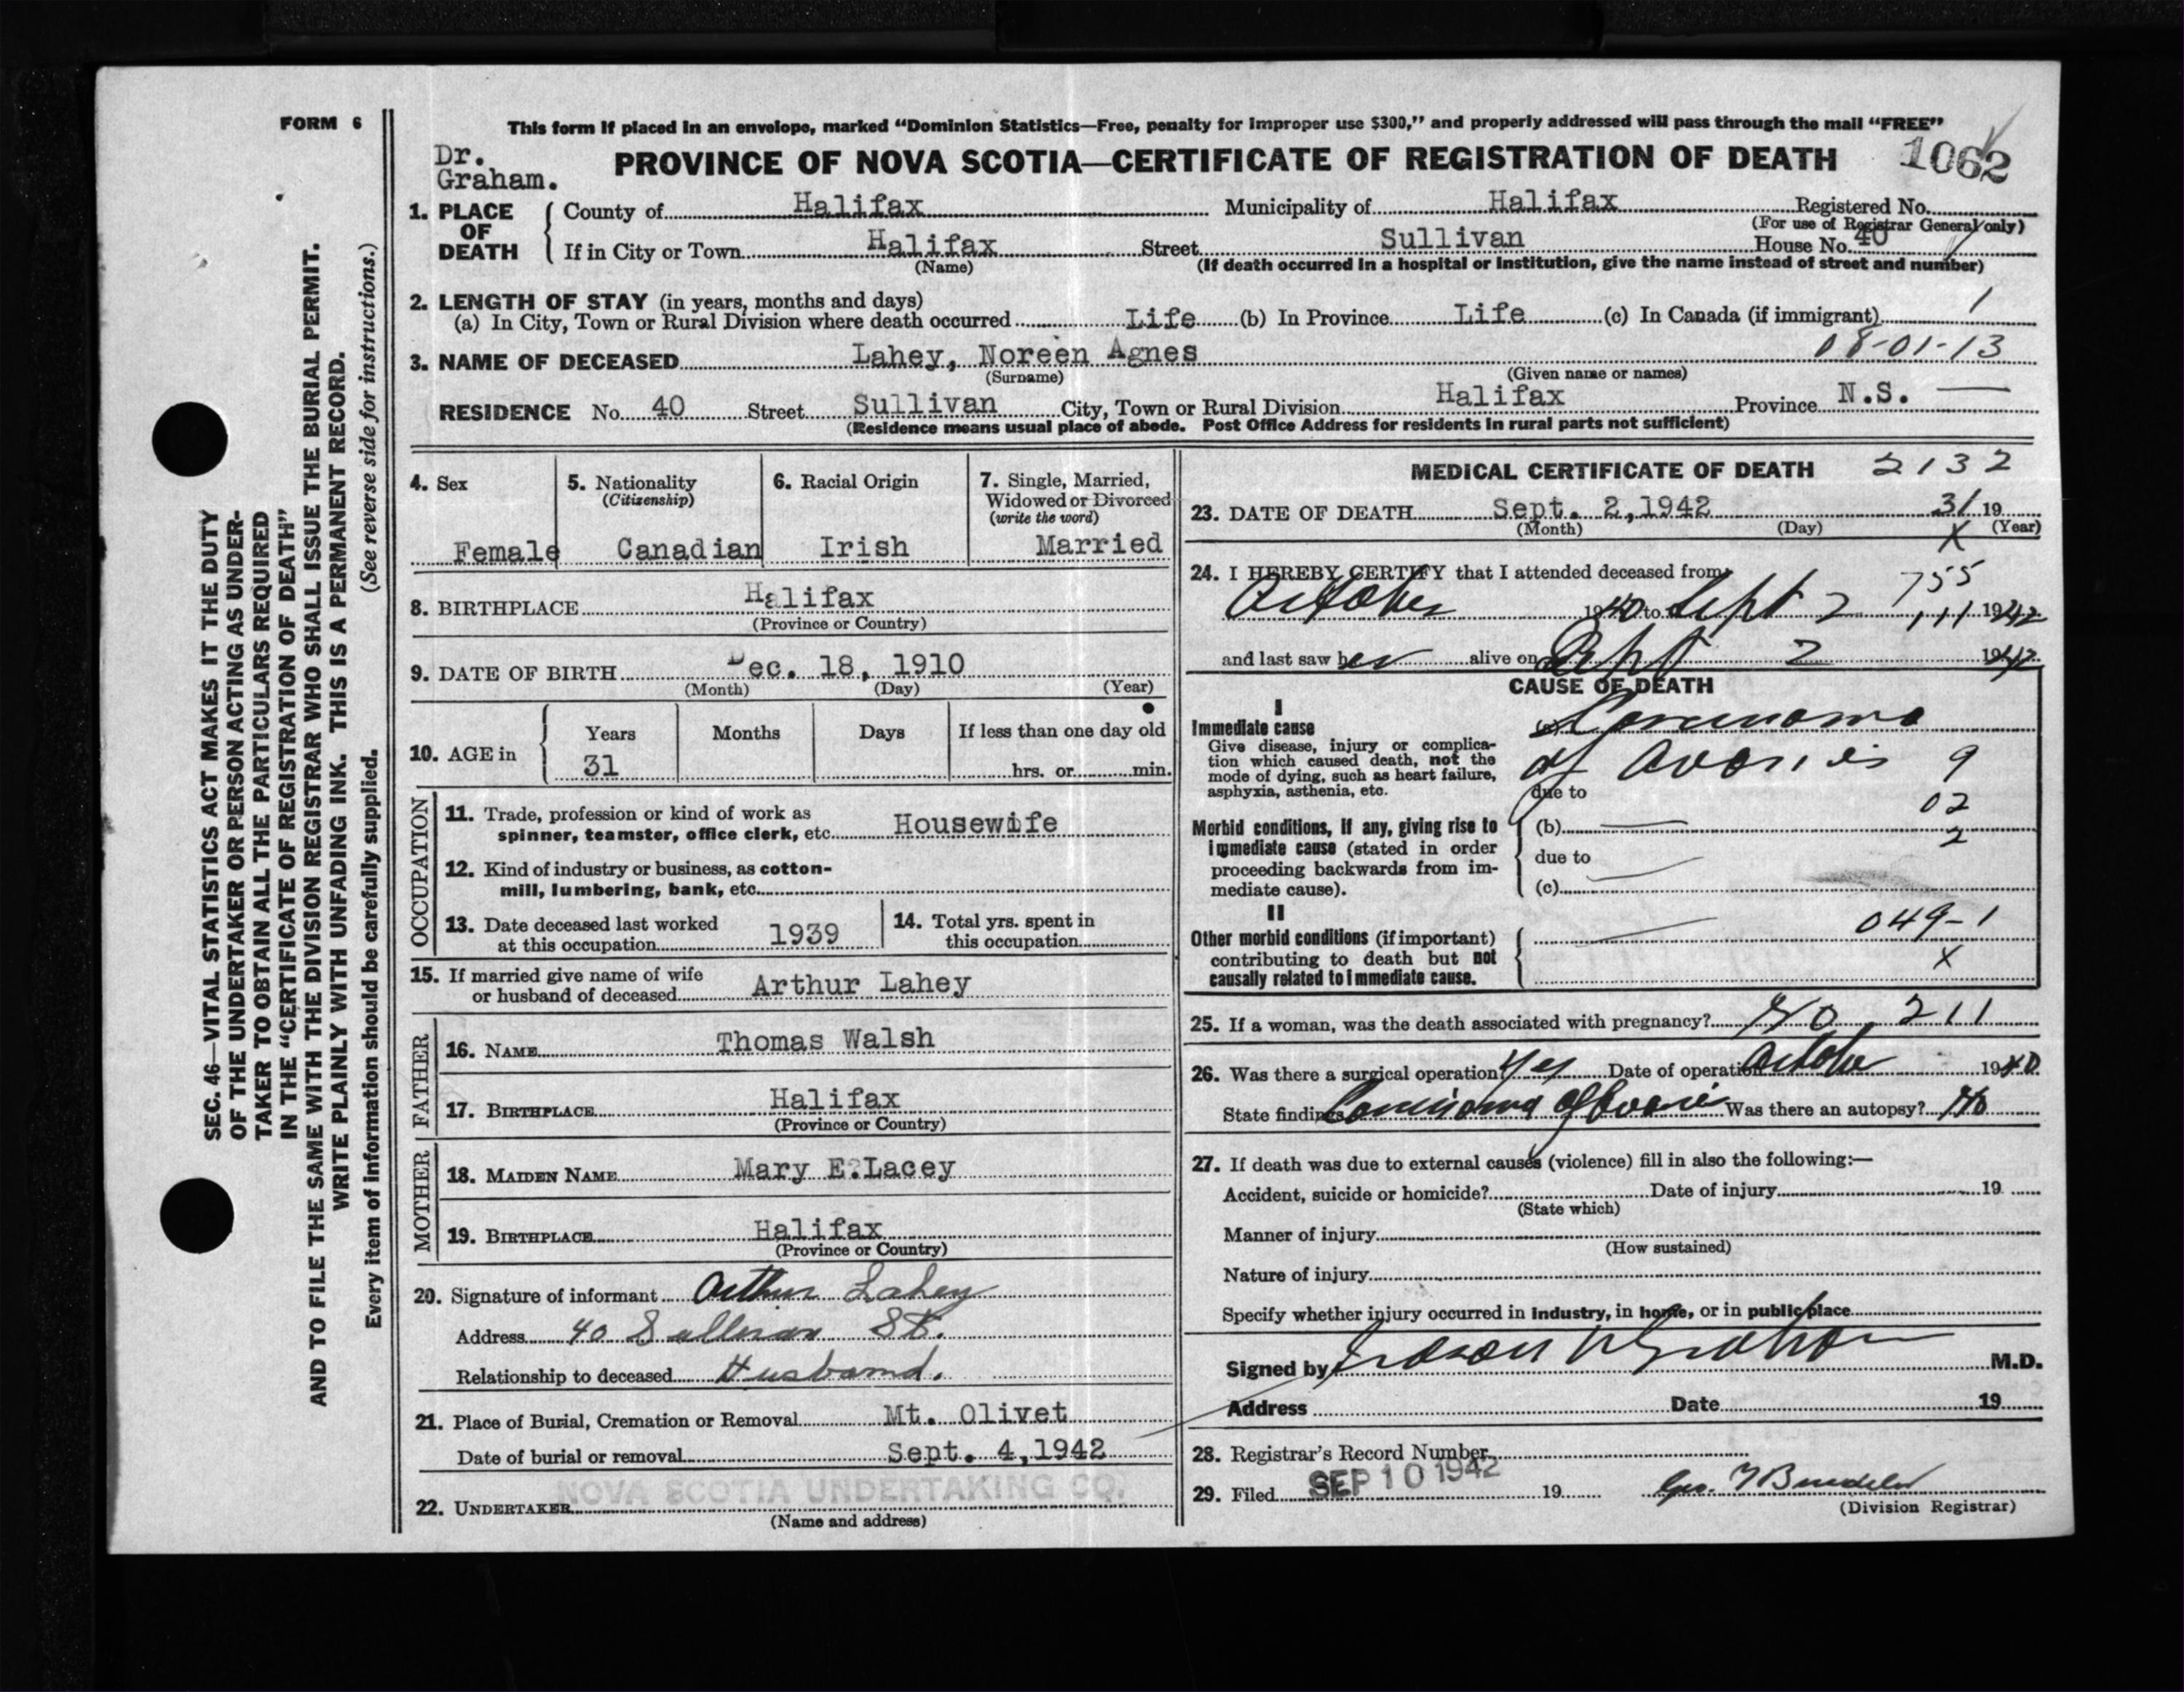 FORM 6
This form if placed in an envelope, marked “Dominion Statistics—Free, penalty for improper use $300,” and properly addressed will pass through the mail “FREE”
Dr. Graham.
PROVINCE OF NOVA SCOTIA—CERTIFICATE OF REGISTRATION OF DEATH 1062
1. PLACE OF DEATH
County of Halifax Municipality of Halifax Registered No.
(For use of Registrar General only)
If in City or Town Halifax Street Sullivan House No. 40
(Name) (If death occurred in a hospital or institution, give the name instead of street and number)
2. LENGTH OF STAY (in years, months and days)
(a) In City, Town or Rural Division where death occurred Life (b) In Province Life (c) In Canada (if immigrant) 1
3. NAME OF DECEASED Lahey, Noreen Agnes 08-01-13
(Surname) (Given name or names)
RESIDENCE No. 40 Street Sullivan City, Town or Rural Division Halifax Province N.S.
(Residence means usual place of abode. Post Office Address for residents in rural parts not sufficient)
4. Sex
Female
5. Nationality
(Citizenship)
Canadian
6. Racial Origin
Irish
7. Single, Married,
Widowed or Divorced
(write the word)
Married
8. BIRTHPLACE Halifax
(Province or Country)
9. DATE OF BIRTH Dec. 18, 1910
(Month) (Day) (Year)
10. AGE in
Years Months Days If less than one day old
31 hrs. or min.
OCCUPATION
11. Trade, profession or kind of work as
spinner, teamster, office clerk, etc. Housewife
12. Kind of industry or business, as cotton-
mill, lumbering, bank, etc.
13. Date deceased last worked
at this occupation 1939
14. Total yrs. spent in
this occupation
15. If married give name of wife
or husband of deceased Arthur Lahey
FATHER
16. NAME Thomas Walsh
17. BIRTHPLACE Halifax
(Province or Country)
MOTHER
18. MAIDEN NAME Mary E. Lacey
19. BIRTHPLACE Halifax
(Province or Country)
20. Signature of informant Arthur Lahey
Address 40 Sullivan St.
Relationship to deceased Husband.
21. Place of Burial, Cremation or Removal Mt. Olivet
Date of burial or removal Sept. 4, 1942
22. UNDERTAKER NOVA SCOTIA UNDERTAKING CO.
(Name and address)
MEDICAL CERTIFICATE OF DEATH 2132
23. DATE OF DEATH Sept. 2, 1942 31 19
(Month) (Day) (Year)
X
24. I HEREBY CERTIFY that I attended deceased from
755
October 1940 to Sept 2 1942
and last saw her alive on Sept 2 1942
CAUSE OF DEATH
I
Immediate cause
Give disease, injury or complica-
tion which caused death, not the
mode of dying, such as heart failure,
asphyxia, asthenia, etc.
(a) Carcinoma
of ovaries 9
due to
02
Morbid conditions, if any, giving rise to
immediate cause (stated in order
proceeding backwards from im-
mediate cause).
(b) 2
due to
(c)
II
Other morbid conditions (if important)
contributing to death but not
causally related to immediate cause.
049-1
X
25. If a woman, was the death associated with pregnancy? No 211
26. Was there a surgical operation? Yes Date of operation October 1940
State findings Carcinoma of Ovaries Was there an autopsy? No
27. If death was due to external causes (violence) fill in also the following:—
Accident, suicide or homicide? Date of injury 19
(State which)
Manner of injury
(How sustained)
Nature of injury
Specify whether injury occurred in industry, in home, or in public place
Signed by Graham M.D.
Address Date 19
28. Registrar's Record Number
29. Filed SEP 10 1942 19
(Division Registrar)
SEC. 46—VITAL STATISTICS ACT MAKES IT THE DUTY
OF THE UNDERTAKER OR PERSON ACTING AS UNDER-
TAKER TO OBTAIN ALL THE PARTICULARS REQUIRED
IN THE “CERTIFICATE OF REGISTRATION OF DEATH”
AND TO FILE THE SAME WITH THE DIVISION REGISTRAR WHO SHALL ISSUE THE BURIAL PERMIT.
WRITE PLAINLY WITH UNFADING INK. THIS IS A PERMANENT RECORD.
Every item of information should be carefully supplied. (See reverse side for instructions.)